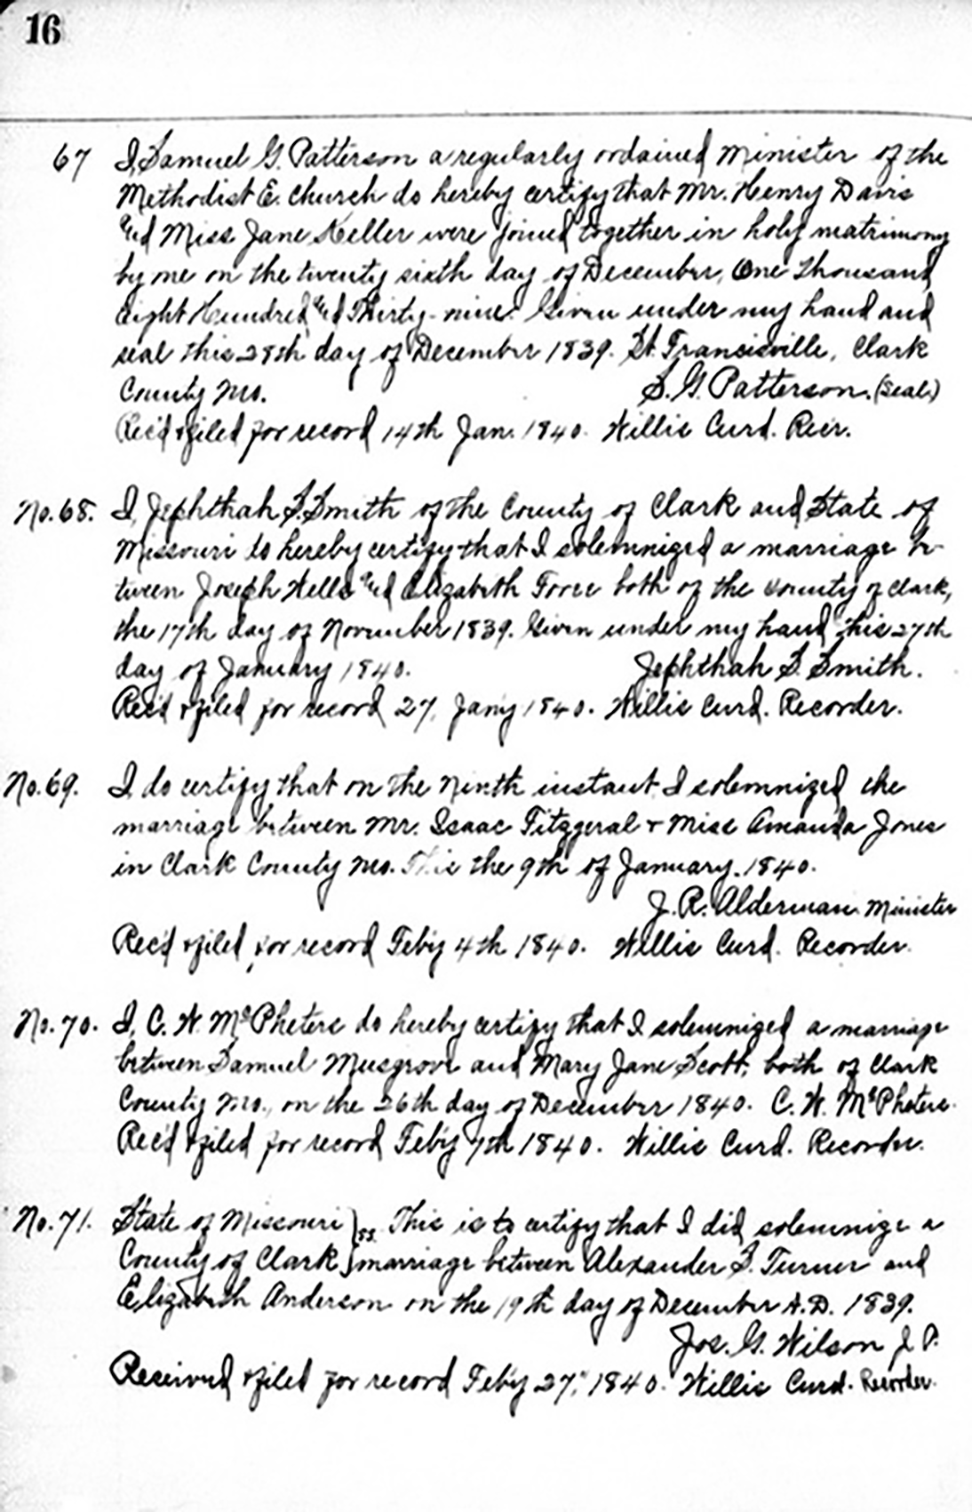 16
67 I, Samuel G. Patterson a regularly ordained Minister of the
Methodist E. Church do hereby certify that Mr. Henry Davis
and Miss Jane Keller were joined together in holy matrimony
by me on the twenty sixth day of December, One Thousand
Eight Hundred and Thirty-nine. Given under my hand and
seal this 28th day of December 1839. St. Francisville, Clark
County Mo. S. G. Patterson. (Seal)
Rec'd & filed for record 14th Jan. 1840. Willis Curd. Recr.
No. 68. I, Jephthah S. Smith of the County of Clark and State of
Missouri do hereby certify that I solemnized a marriage be-
tween Joseph Wells and Elizabeth both of the County of Clark,
the 17th day of November 1839. Given under my hand this 27th
day of January 1840. Jephthah S. Smith.
Rec'd & filed for record 27, Jany 1840. Willis Curd. Recorder.
No. 69. I, do certify that on the Ninth instant I solemnized the
marriage between Mr. Isaac Fitzgeral & Miss Amanda Jones
in Clark County Mo. This the 9th of January. 1840.
J. R. Alderman. Minister
Rec'd & filed, for record Feb'y 4th 1840. Willis Curd. Recorder.
No. 70. I, C. W. McPheters do hereby certify that I solemnized a marriage
between Samuel Musgrove and Mary Jane Scott, both of Clark
County Mo., on the 26th day of December 1840. C. W. McPheters.
Rec'd & filed for record Feb'y 7th 1840. Willis Curd. Recorder.
No. 71. State of Missouri } ss. This is to certify that I did solemnize a
County of Clark } marriage between Alexander S. Turner and
Elizabeth Anderson on the 19th day of December A.D. 1839.
Jos. G. Wilson J. P.
Received & filed for record Feb'y 27, 1840. Willis Curd. Recorder.